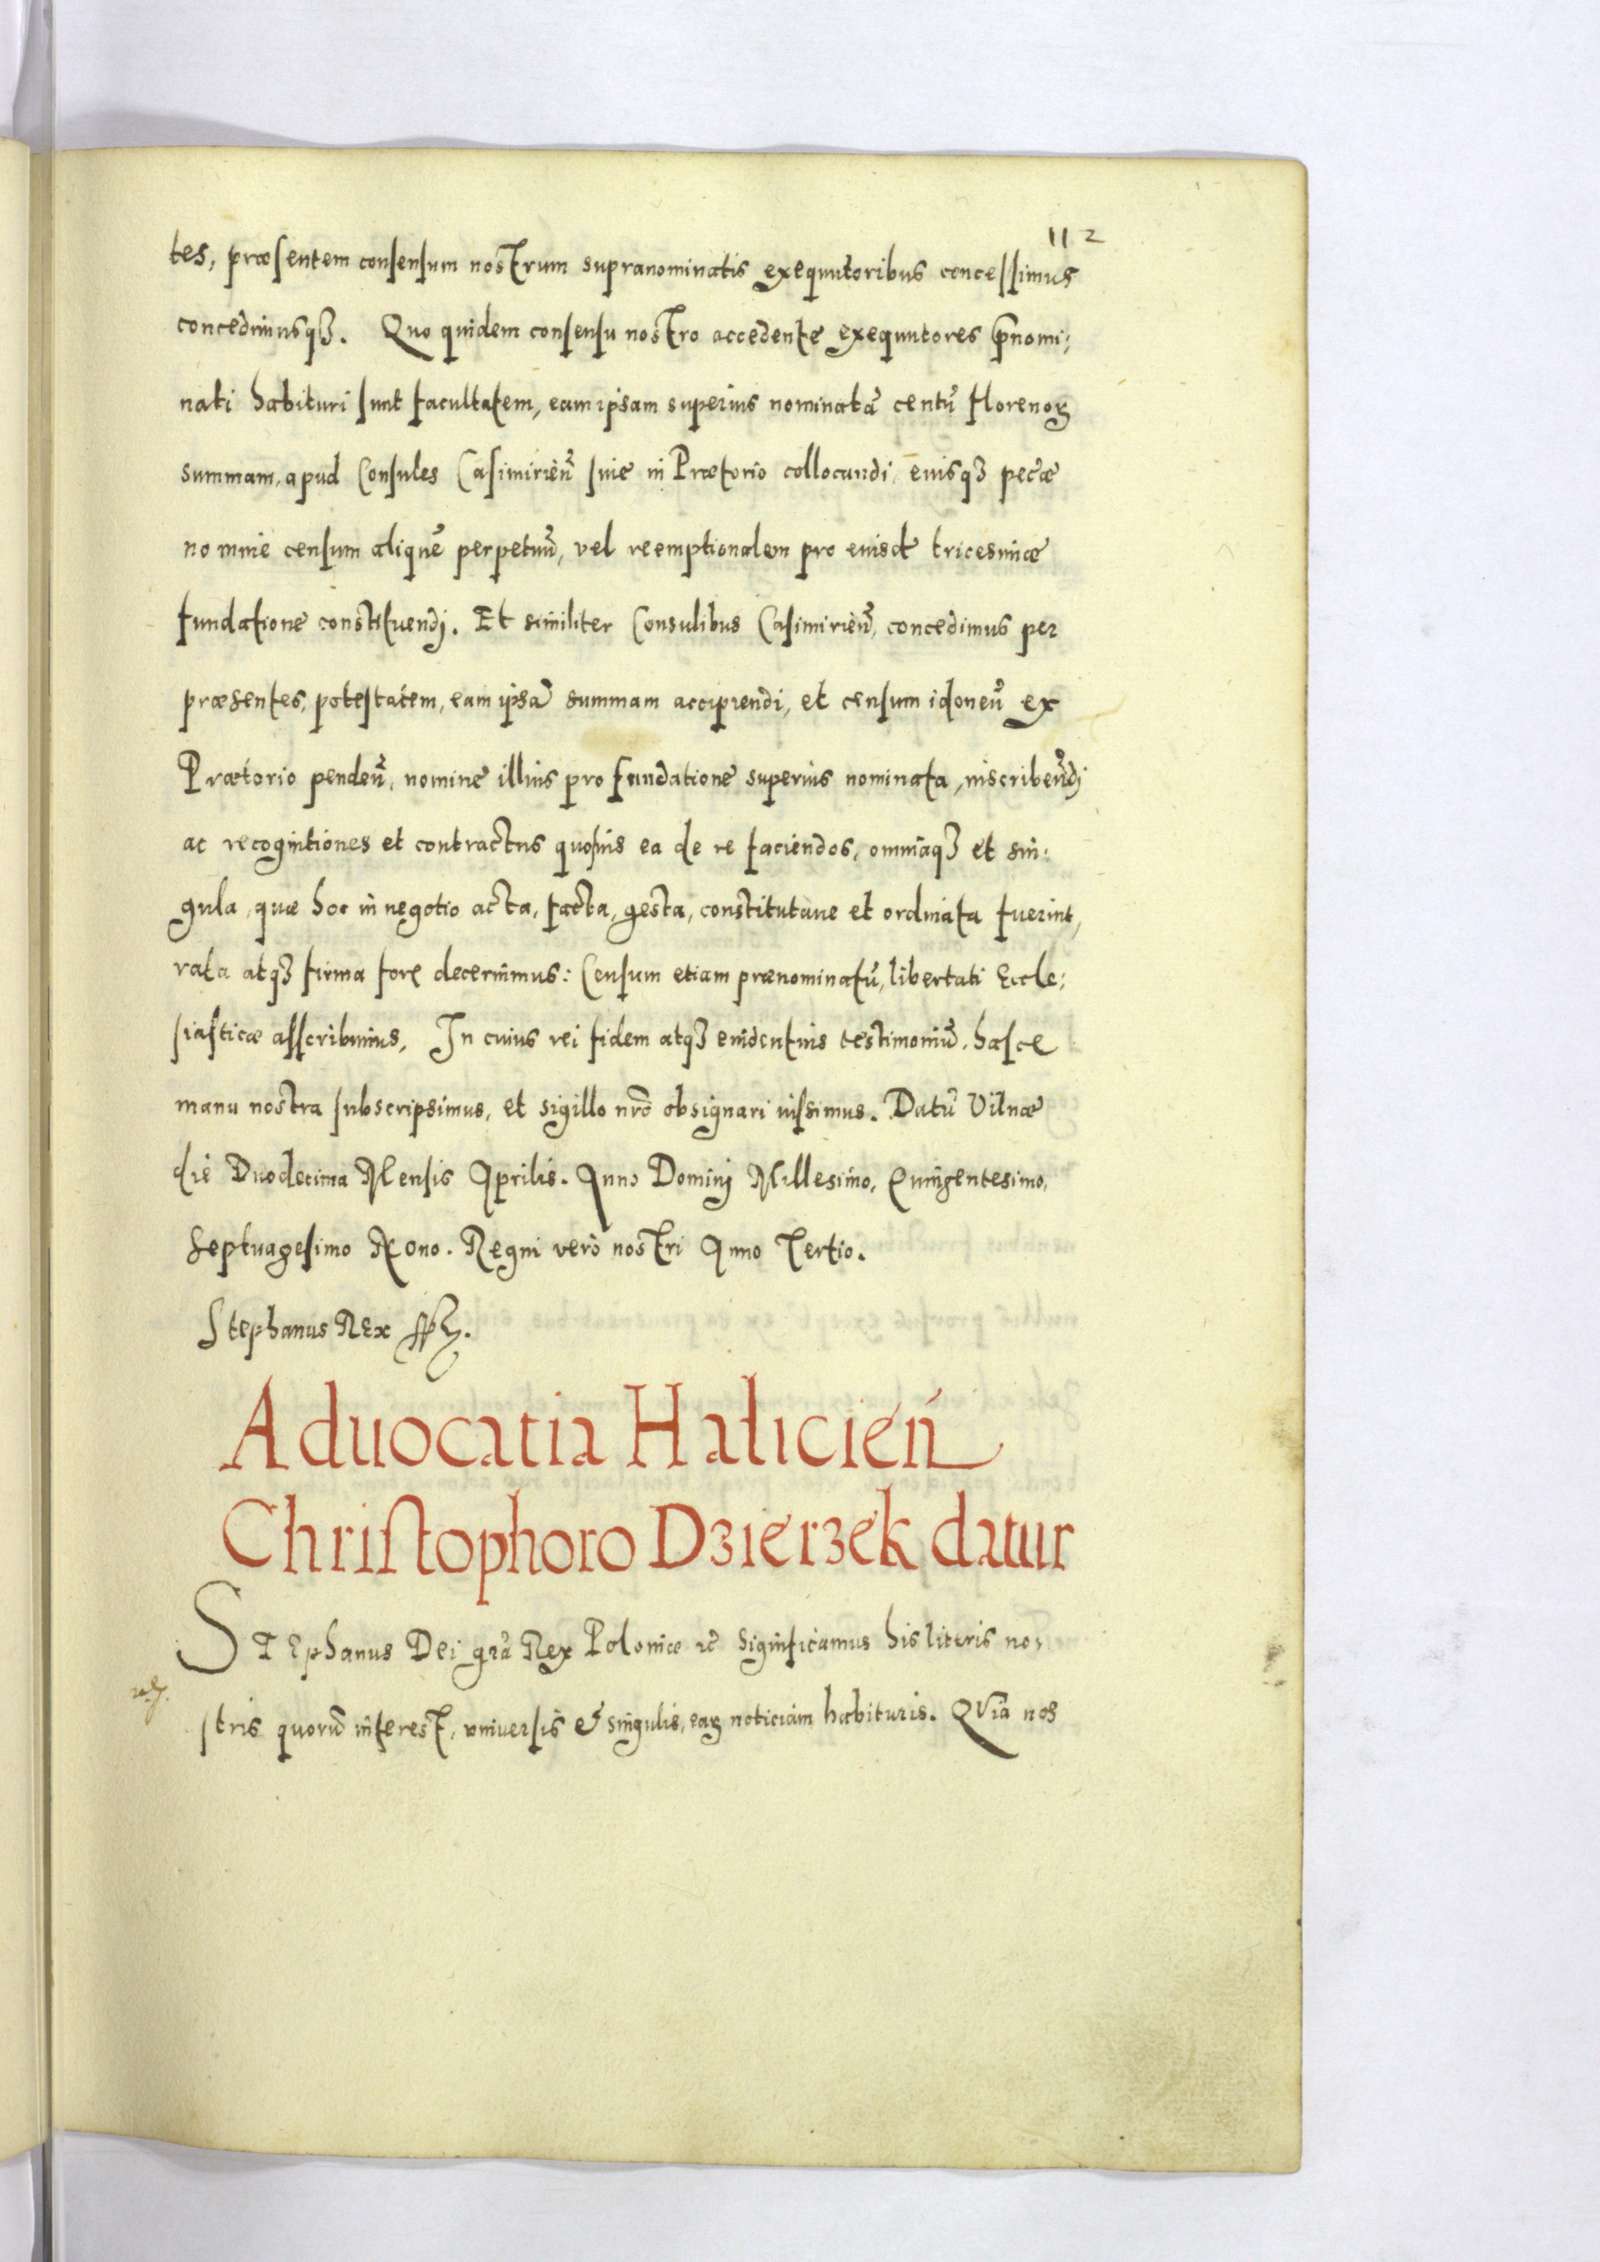 112
tes, præsentem consensum nostrum supranominatis exequutoribus concessimus
concedimusqȝ. Quo quidem consensu nostro accedente exequutores p̄nomi:
nati habituri sunt facultatem, eam ipsam superius nominatā centū florenoꝝ
summam, apud Consules Casimirien̄ siue in Prætorio collocandi, eiusqȝ pecæ
nomine censum aliquē perpetuū, vel reemptionalem pro eiusdē tricesimæ
fundatione constituendj. Et similiter Consulibus Casimirien̄, concedimus per
præsentes, potestatem, eam ipsā summam accipiendi, et censum idoneū ex
Prætorio penden̄, nomine illius pro fundatione superius nominata, inscribendj
ac recognitiones et contractus quosuis ea de re faciendos, omniaqȝ et sin:
gula, quæ hoc in negotio acta, facta, gesta, constitutaue et ordinata fuerint,
rata atqȝ firma fore decernimus: Censum etiam prænominatū, libertati Eccle:
siasticæ asscribimus, In cuius rei fidem atqȝ euidentius testimoniū, hasce
manu nostra subscripsimus, et sigillo nr̄o obsignari iussimus. Datū Vilnæ
die Duodecima Mensis Aprilis. Anno Dominj Millesimo, Quingentesimo,
Septuagesimo Nono. Regni verò nostri Anno Tertio.
Stephanus Rex
Aduocatia Halicien̄
Christophoro Dzierzek datur
STEphanus Dei gr̄a Rex Poloniæ ec̄ Significamus his literis no:
stris quorū interest, vniuersis & singulis, eaꝝ noticiam habituris. QVia nos